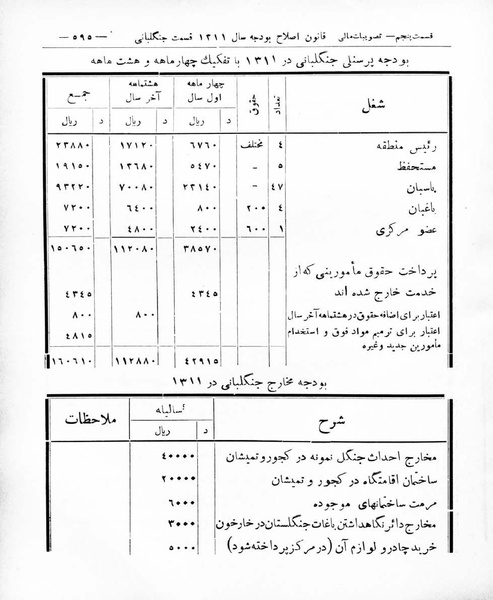 قسمت پنجم — تصویبات مالی قانون اصلاح بودجه سال ۱۳۱۱ قسمت جنگلبانی — ۵۹۵ —
بودجه پرسنلی جنگلبانی در ۱۳۱۱ با تفکیك چهارماهه و هشت ماهه
شغل تعداد حقوق چهار ماهه اول سال هشتماهه آخر سال جمع
ریال د ریال د ریال د
رئیس منطقه ۴ مختلف ۶۷۶۰ ۱۷۱۲۰ ۲۳۸۸۰
مستحفظ ۵ - ۵۴۷۰ ۱۳۶۸۰ ۱۹۱۵۰
پاسبان ۴۷ - ۲۳۱۴۰ ۷۰۰۸۰ ۹۳۲۲۰
باغبان ۴ ۲۰۰ ۸۰۰ ۶۴۰۰ ۷۲۰۰
عضو مرکزی ۱ ۶۰۰ ۲۴۰۰ ۴۸۰۰ ۷۲۰۰
۳۸۵۷۰ ۱۱۲۰۸۰ ۱۵۰۶۵۰
پرداخت حقوق مأمورینی که از
خدمت خارج شده اند ۴۳۴۵ ۴۳۴۵
اعتبار برای اضافه حقوق در هشتماهه آخر سال ۸۰۰ ۸۰۰
اعتبار برای ترمیم مواد فوق و استخدام ۴۸۱۵
مأمورین جدید وغیره
۴۲۹۱۵ ۱۱۲۸۸۰ ۱۶۰۶۱۰
بودجه مخارج جنگلبانی در ۱۳۱۱
شرح سالیانه ملاحظات
ریال د
مخارج احداث جنگل نمونه در کجور و تمیشان ۴۰۰۰۰
ساختمان اقامتگاه در کجور و تمیشان ۲۰۰۰۰
مرمت ساختمانهای موجوده ۶۰۰۰
مخارج دائر نگاهداشتن باغات جنگلستان در خارخون ۳۰۰۰
خرید چادر و لوازم آن (در مرکز پرداخته شود) ۵۰۰۰